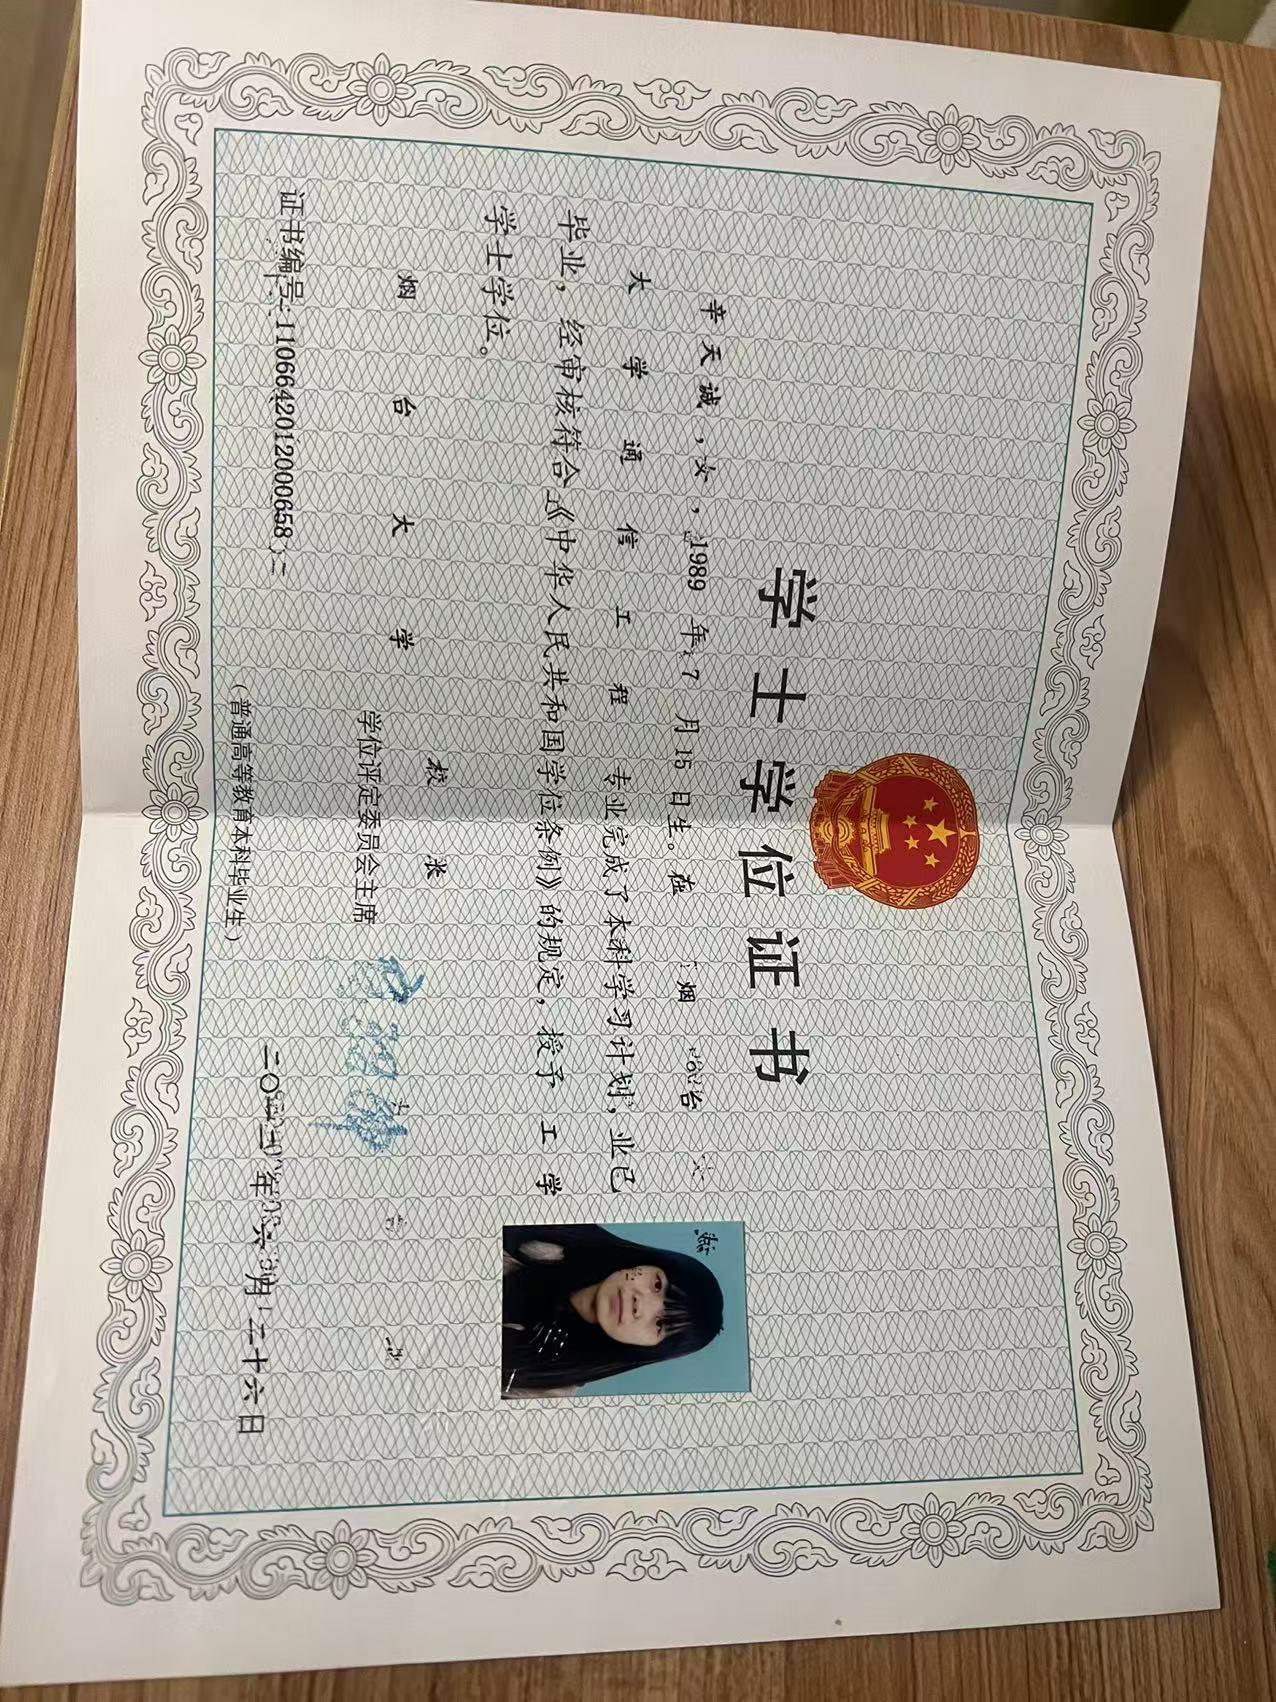 学士学位证书
辛天诚，女，1989年7月15日生。在 烟 台
大学通信工程 专业完成了本科学习计划，业已
毕业，经审核符合《中华人民共和国学位条例》的规定，授予 工学
学士学位。
烟台大学
校 长
学位评定委员会主席
证书编号：1106642012000658
年六月二十六日
（普通高等教育本科毕业生）